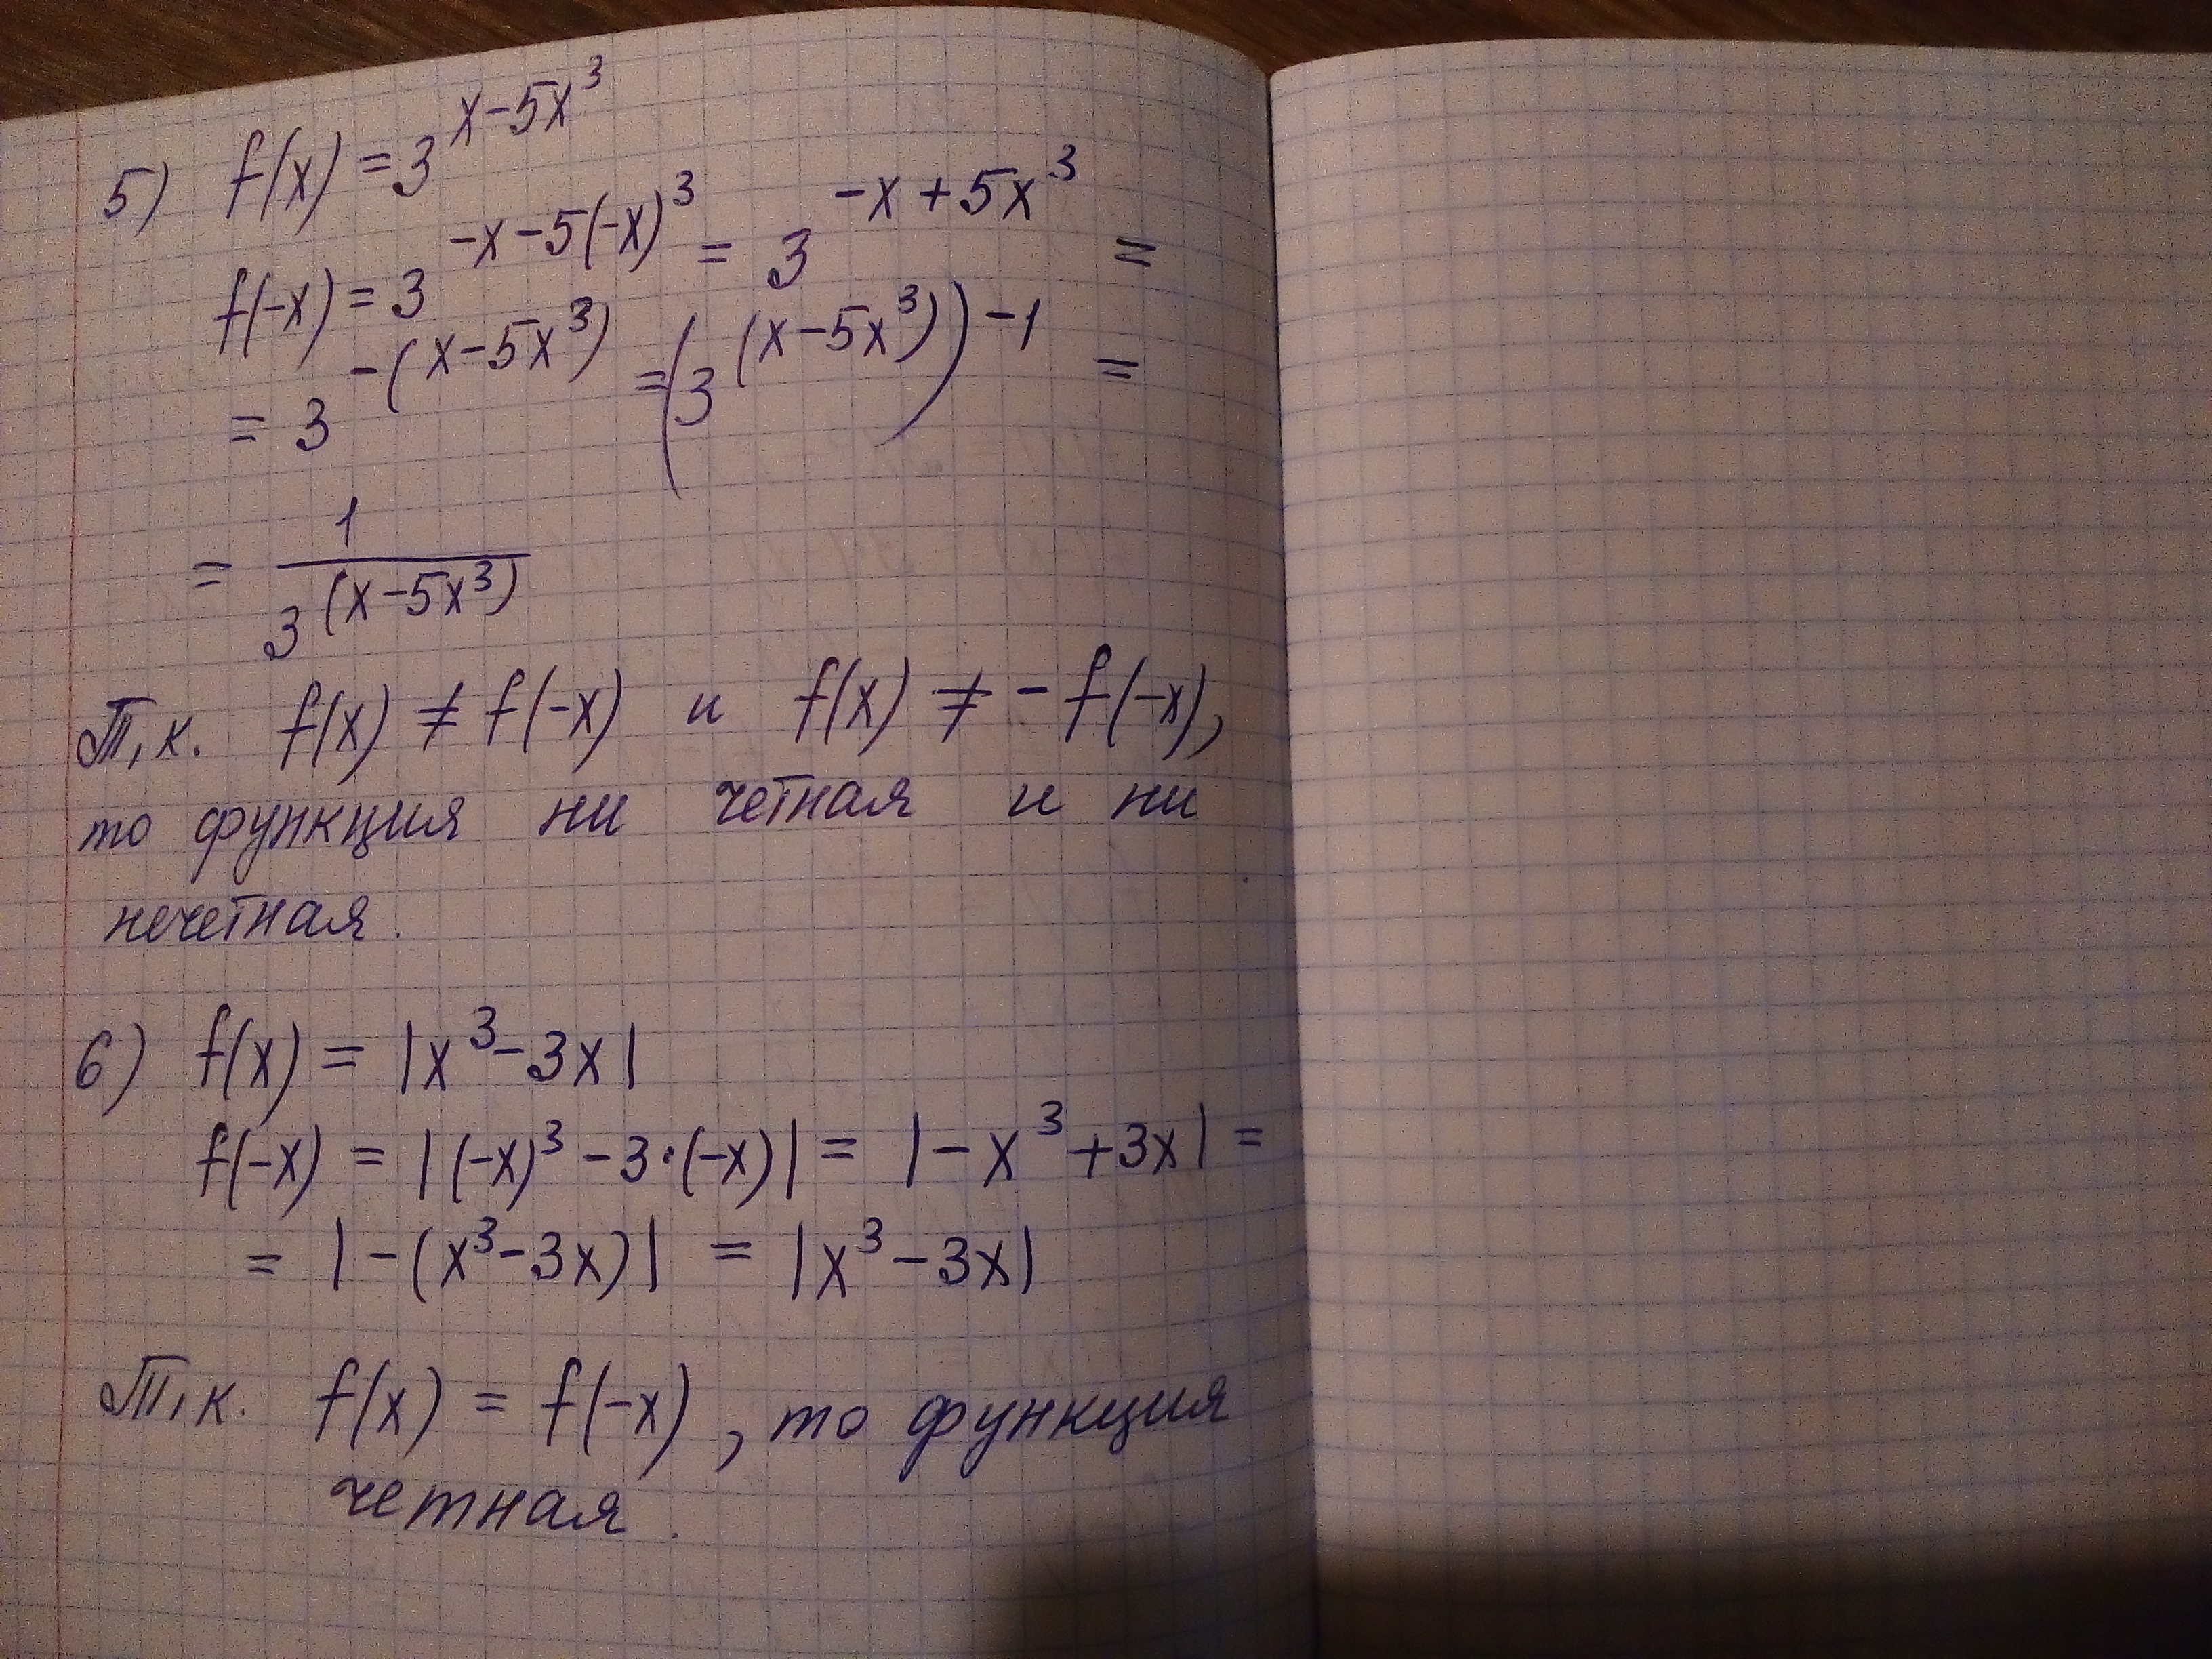 5) f(x) = 3^(x-5x³)
f(-x) = 3^(-x-5(-x)³) = 3^(-x+5x³) =
= 3^(-(x-5x³)) = (3^((x-5x³)))^(-1) =
= 1 / 3^((x-5x³))
Т.к. f(x) ≠ f(-x) и f(x) ≠ -f(-x),
то функция ни четная и ни
нечетная.
6) f(x) = |x³-3x|
f(-x) = |(-x)³-3·(-x)| = |-x³+3x| =
= |-(x³-3x)| = |x³-3x|
Т.к. f(x) = f(-x), то функция
четная.